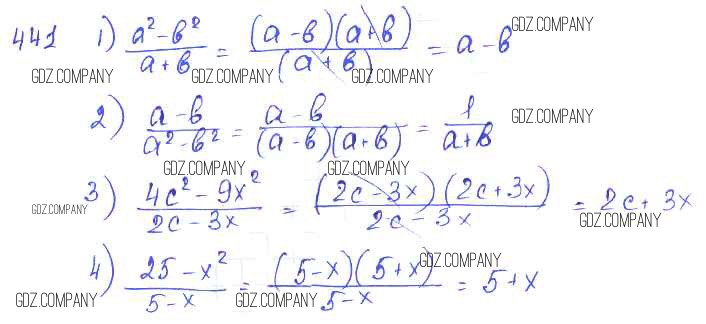 441 1) (a² - b²)/(a + b) = ((a - b)(a + b))/((a + b)) = a - b GDZ.COMPANY
GDZ.COMPANY GDZ.COMPANY GDZ.COMPANY
2) (a - b)/(a² - b²) = (a - b)/((a - b)(a + b)) = 1/(a + b) GDZ.COMPANY
GDZ.COMPANY GDZ.COMPANY
3) (4c² - 9x²)/(2c - 3x) = ((2c - 3x)(2c + 3x))/(2c - 3x) = 2c + 3x
GDZ.COMPANY GDZ.COMPANY
4) (25 - x²)/(5 - x) = ((5 - x)(5 + x))/(5 - x) = 5 + x GDZ.COMPANY
GDZ.COMPANY GDZ.COMPANY